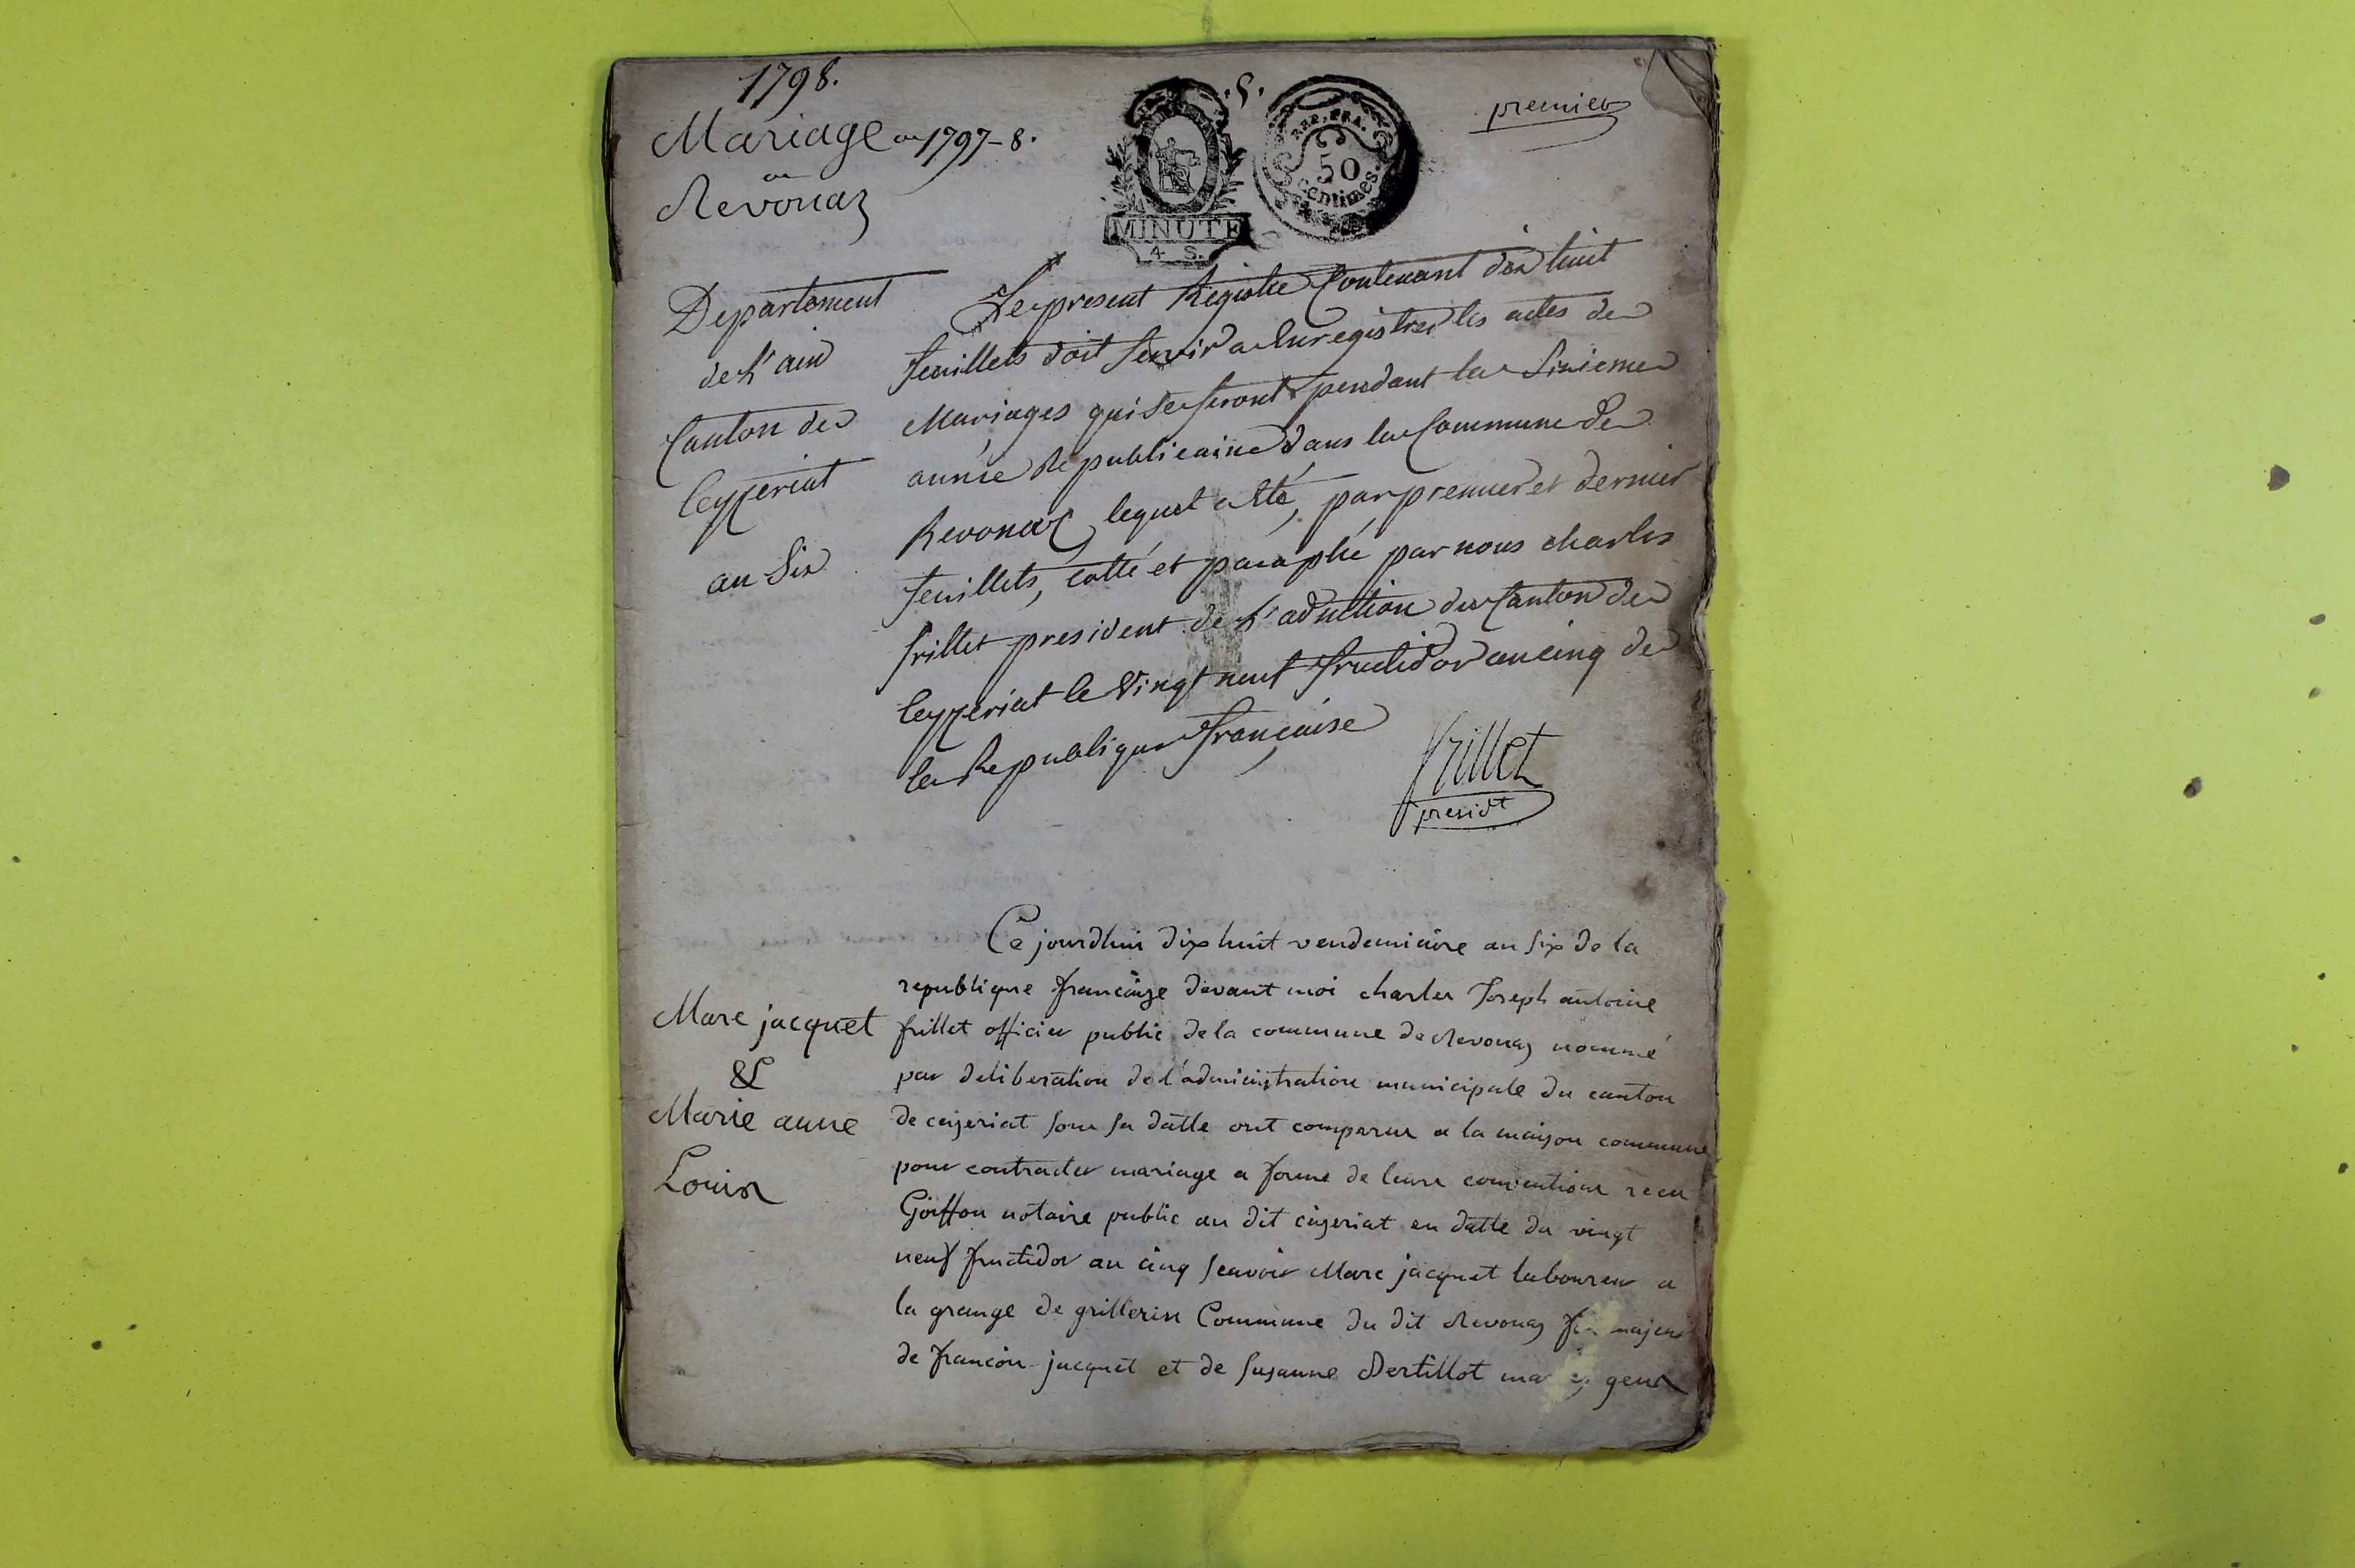 1798.
Mariage an 1797-8.
an
Revonaz
.S.
MINUTE
4 S.
REP. FRA.
50
Centimes.
premier
Departement
de l'ain
Canton de
Ceyzeriat
an Six
Le present Registre Contenant dix huit
feuillets doit Servir a Enregistrer les actes de
Mariages qui se feront pendant la Sixieme
année Republicaine dans la Commune de
Revonaz, lequel a Eté, par premier et dernier
feuillets, cotté et paraphé par nous charles
frillet president de l'adm.tion du Canton de
Ceyzeriat le Vingt neuf fructidor an cinq de
la Republique française
frillet
presidt
Marc jacquet
&
Marie anne
Louis
Ce jourdhui dix huit vendemiaire an six de la
republique françaize devant moi charles Joseph antoine
frillet officier public de la commune de Revonaz nommé
par deliberation de l'administration municipale du canton
de cezeriat sous sa datte ont comparus a la maison commune
pour contracter mariage a forme de leurs conventions recu
Goiffon notaire public au dit cezeriat en datte du vingt
neuf fructidor an cinq scavoir Marc jacquet laboureur a
la grange de grillerin Commune du dit Revonaz majeur
de francois jacquet et de Susanne Dertillot